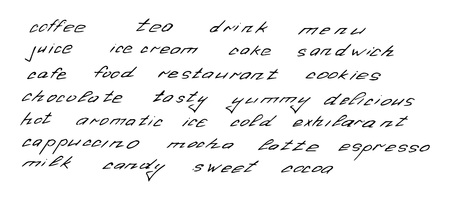 coffee tea drink menu
juice ice cream cake sandwich
cafe food restaurant cookies
chocolate tasty yummy delicious
hot aromatic ice cold exhilarant
cappuccino mocha latte espresso
milk candy sweet cocoa